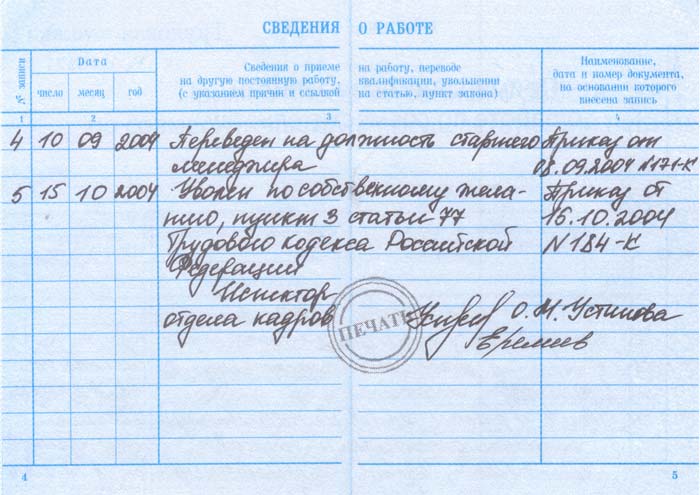 СВЕДЕНИЯ О РАБОТЕ
№ записи
Дата
число
месяц
год
Сведения о приеме на работу, переводе
на другую постоянную работу, квалификации, увольнении
(с указанием причин и ссылкой на статью, пункт закона)
Наименование,
дата и номер документа,
на основании которого
внесена запись
1 2 3 4
4 10 09 2004 Переведен на должность старшего Приказ от
менеджера 08.09.2004 N171-К
5 15 10 2004 Уволен по собственному жела- Приказ от
нию, пункт 3 статьи 77 15.10.2004
Трудового кодекса Российской N184-К
Федерации
Инспектор
отдела кадров О.М. Устинова
ПЕЧАТЬ
Еремеев
4 5